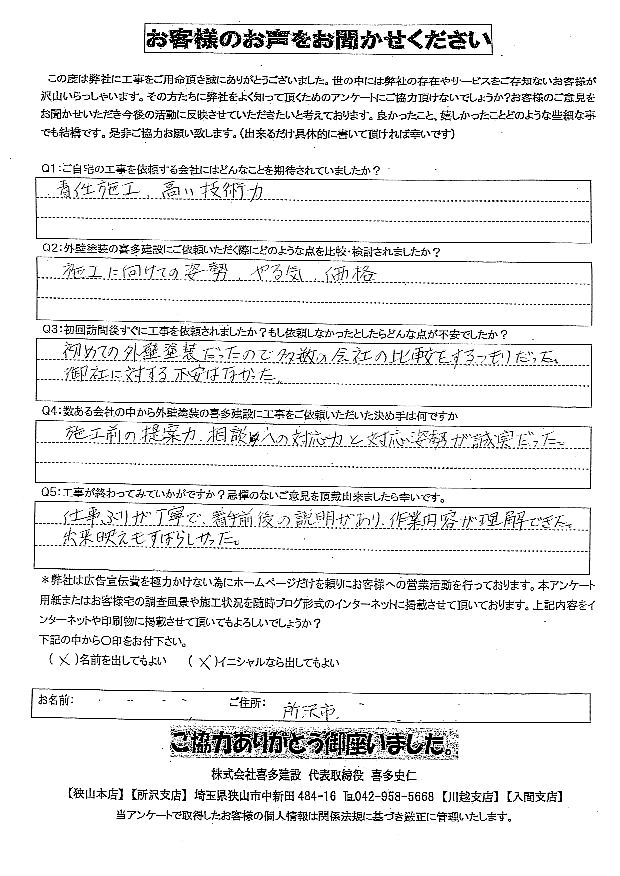 お客様のお声をお聞かせください
この度は弊社に工事をご用命頂き誠にありがとうございました。世の中には弊社の存在やサービスをご存知ないお客様が
沢山いらっしゃいます。その方たちに弊社をよく知って頂くためのアンケートにご協力頂けないでしょうか?お客様のご意見を
お聞かせいただき今後の活動に反映させていただきたいと考えております。良かったこと、嬉しかったことどのような些細な事
でも結構です。是非ご協力お願い致します。(出来るだけ具体的に書いて頂ければ幸いです)
Q1:ご自宅の工事を依頼する会社にはどんなことを期待されていましたか?
責任施工、高い技術力
Q2:外壁塗装の喜多建設にご依頼いただく際にどのような点を比較・検討されましたか?
施工に向けての姿勢、やる気、価格
Q3:初回訪問後すぐに工事を依頼されましたか?もし依頼しなかったとしたらどんな点が不安でしたか?
初めての外壁塗装だったので多数の会社の比較をするつもりだった。
御社に対する不安はなかった。
Q4:数ある会社の中から外壁塗装の喜多建設に工事をご依頼いただいた決め手は何ですか
施工前の提案力、相談への対応力と対応姿勢が誠実だった。
Q5:工事が終わってみていかがですか?忌憚のないご意見を頂戴出来ましたら幸いです。
仕事ぶりが丁寧で、着工前後の説明があり、作業内容が理解できた。
出来映えもすばらしかった。
*弊社は広告宣伝費を極力かけない為にホームページだけを頼りにお客様への営業活動を行っております。本アンケート
用紙またはお客様宅の調査風景や施工状況を随時ブログ形式のインターネットに掲載させて頂いております。上記内容をイ
ンターネットや印刷物に掲載させて頂いてもよろしいでしょうか?
下記の中から〇印をお付下さい。
(×)名前を出してもよい (×)イニシャルなら出してもよい
お名前: ご住所: 所沢市
ご協力ありがとう御座いました。
株式会社喜多建設 代表取締役 喜多史仁
【狭山本店】【所沢支店】 埼玉県狭山市中新田484-16 ℡042-958-5668 【川越支店】【入間支店】
当アンケートで取得したお客様の個人情報は関係法規に基づき厳正に管理いたします。